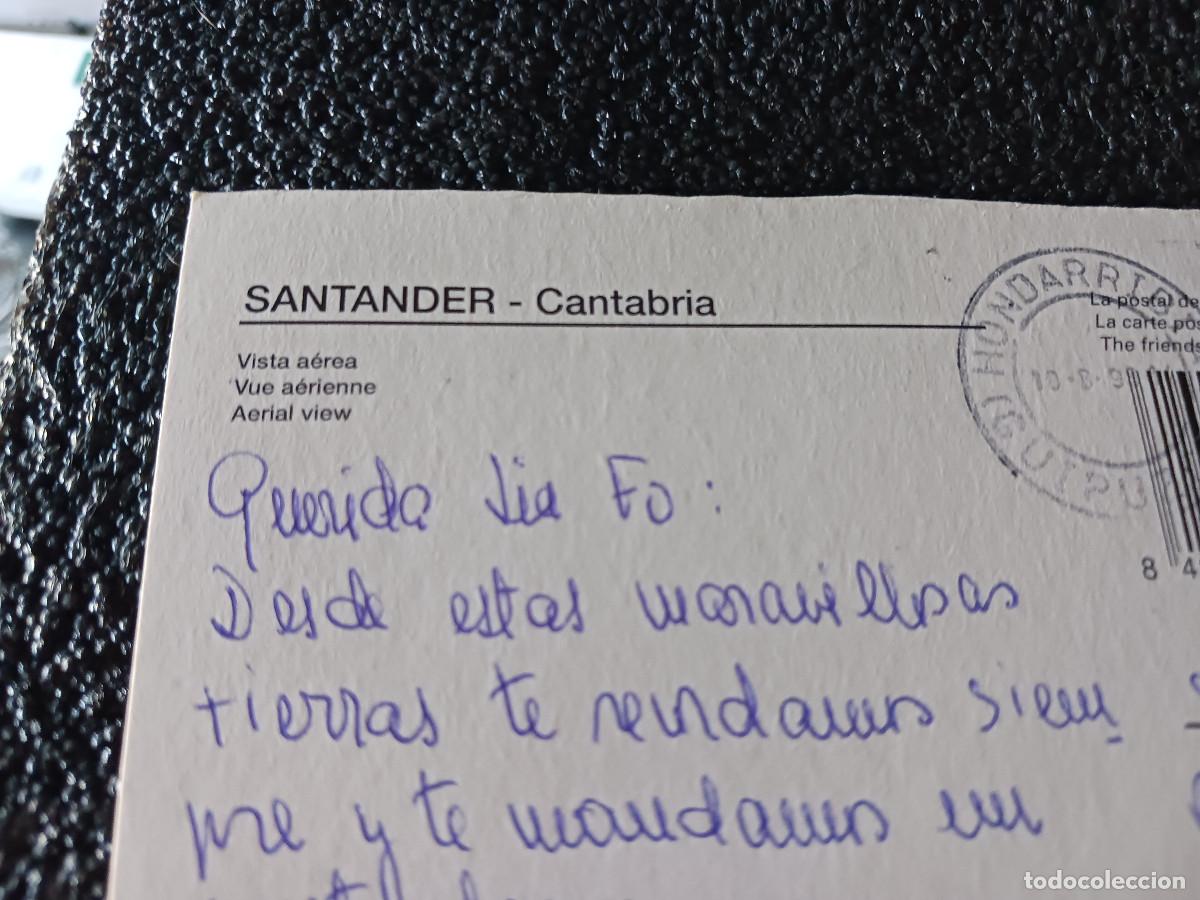 SANTANDER - Cantabria
Vista aérea
Vue aérienne
Aerial view
HONDARRIBIA
(GUIPU
La postal de
La carte pos
The friends
8 4
Querida Tía Fo:
Desde estas maravillosas
tierras te recordamos siem
pre y te mandamos un
todocoleccion